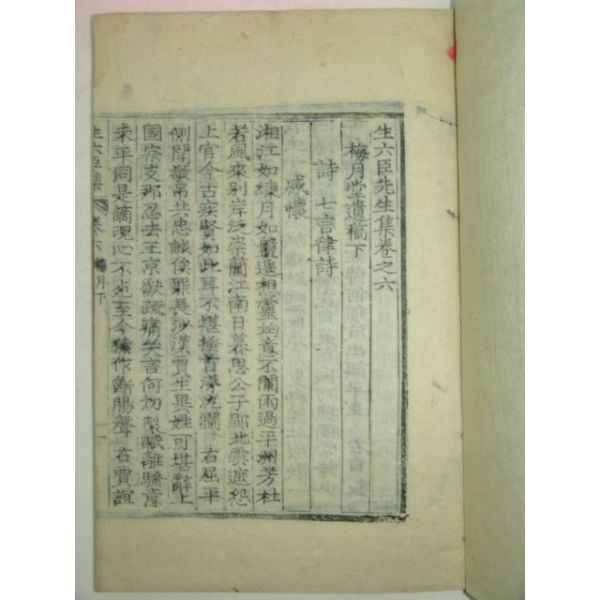 生六臣先生集卷之六
梅月堂遺稿下
詩 七言律詩
感懷
湘江如練月如盤遥想靈均意不闌雨過平洲芳杜
若風來別岸泛崇蘭江南日暮思公子郢北雲遮怨
上官今古疾賢如此耳不堪搔首淚汍瀾 右屈平
側聞敬吊共忠誠俟罪長沙漢賈生異姓可堪辭上
國宗支那忍去王京獻疏痛哭言何切製賦離騷意
未平同是謫現心不死至今猶作斷腸聲 右賈誼
生六臣集 卷六 梅月下